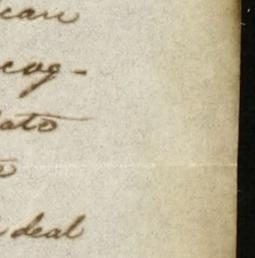 can
cog-
ato
deal